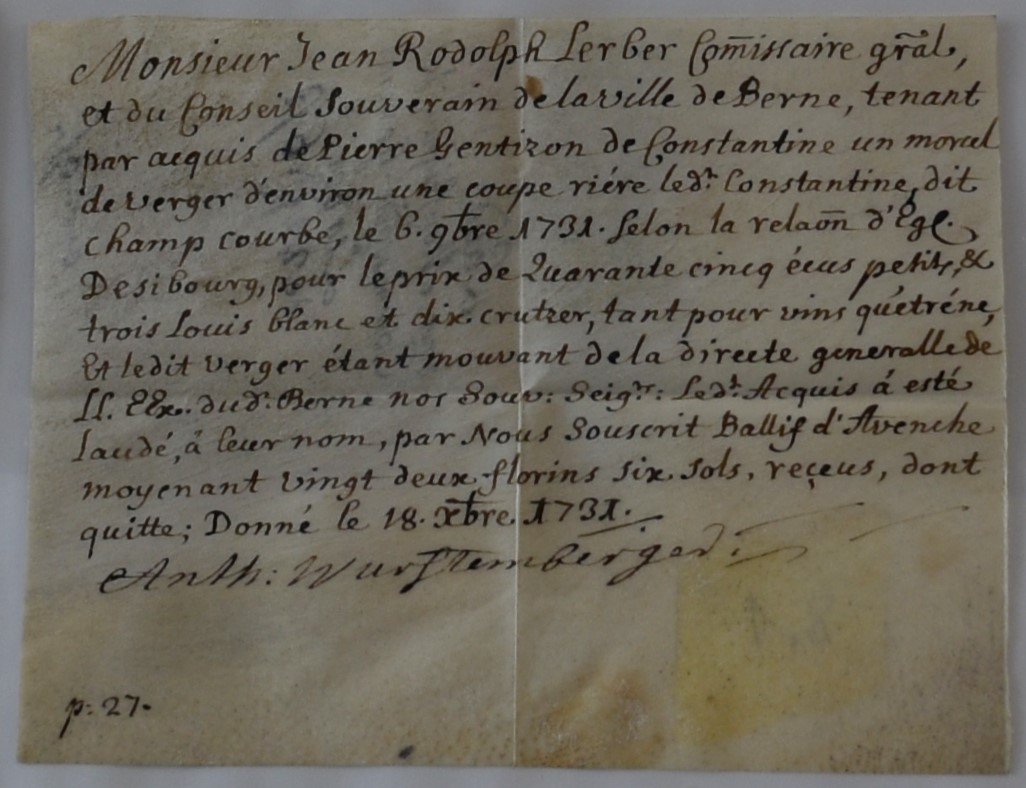 Monsieur Jean Rodolph Lerber Com̄issaire gñal,
et du Conseil Souverain de la ville de Berne, tenant
par acquis de Pierre Gentizon de Constantine un morcel
de verger d'environ une coupe riére led.t Constantine, dit
champ courbe, le 6. 9bre 1731. selon la relaõn d'Eg.
Desibourg, pour le prix de Quarante cinq écus petits, &
trois Louis blanc et dix crutzer, tant pour vins qu'etréne,
Et ledit verger étant mouvant de la directe generalle de
LL. EEx. dud.t Berne nos Souv: Seig.rs: Led.t Acquis á esté
laudé, à leur nom, par Nous Souscrit Ballif d'Avenche
moyenant vingt deux florins six sols, reçeus, dont
quitte; Donné le 18. Xbre. 1731.
Anth: Wurstemberger
p: 27.